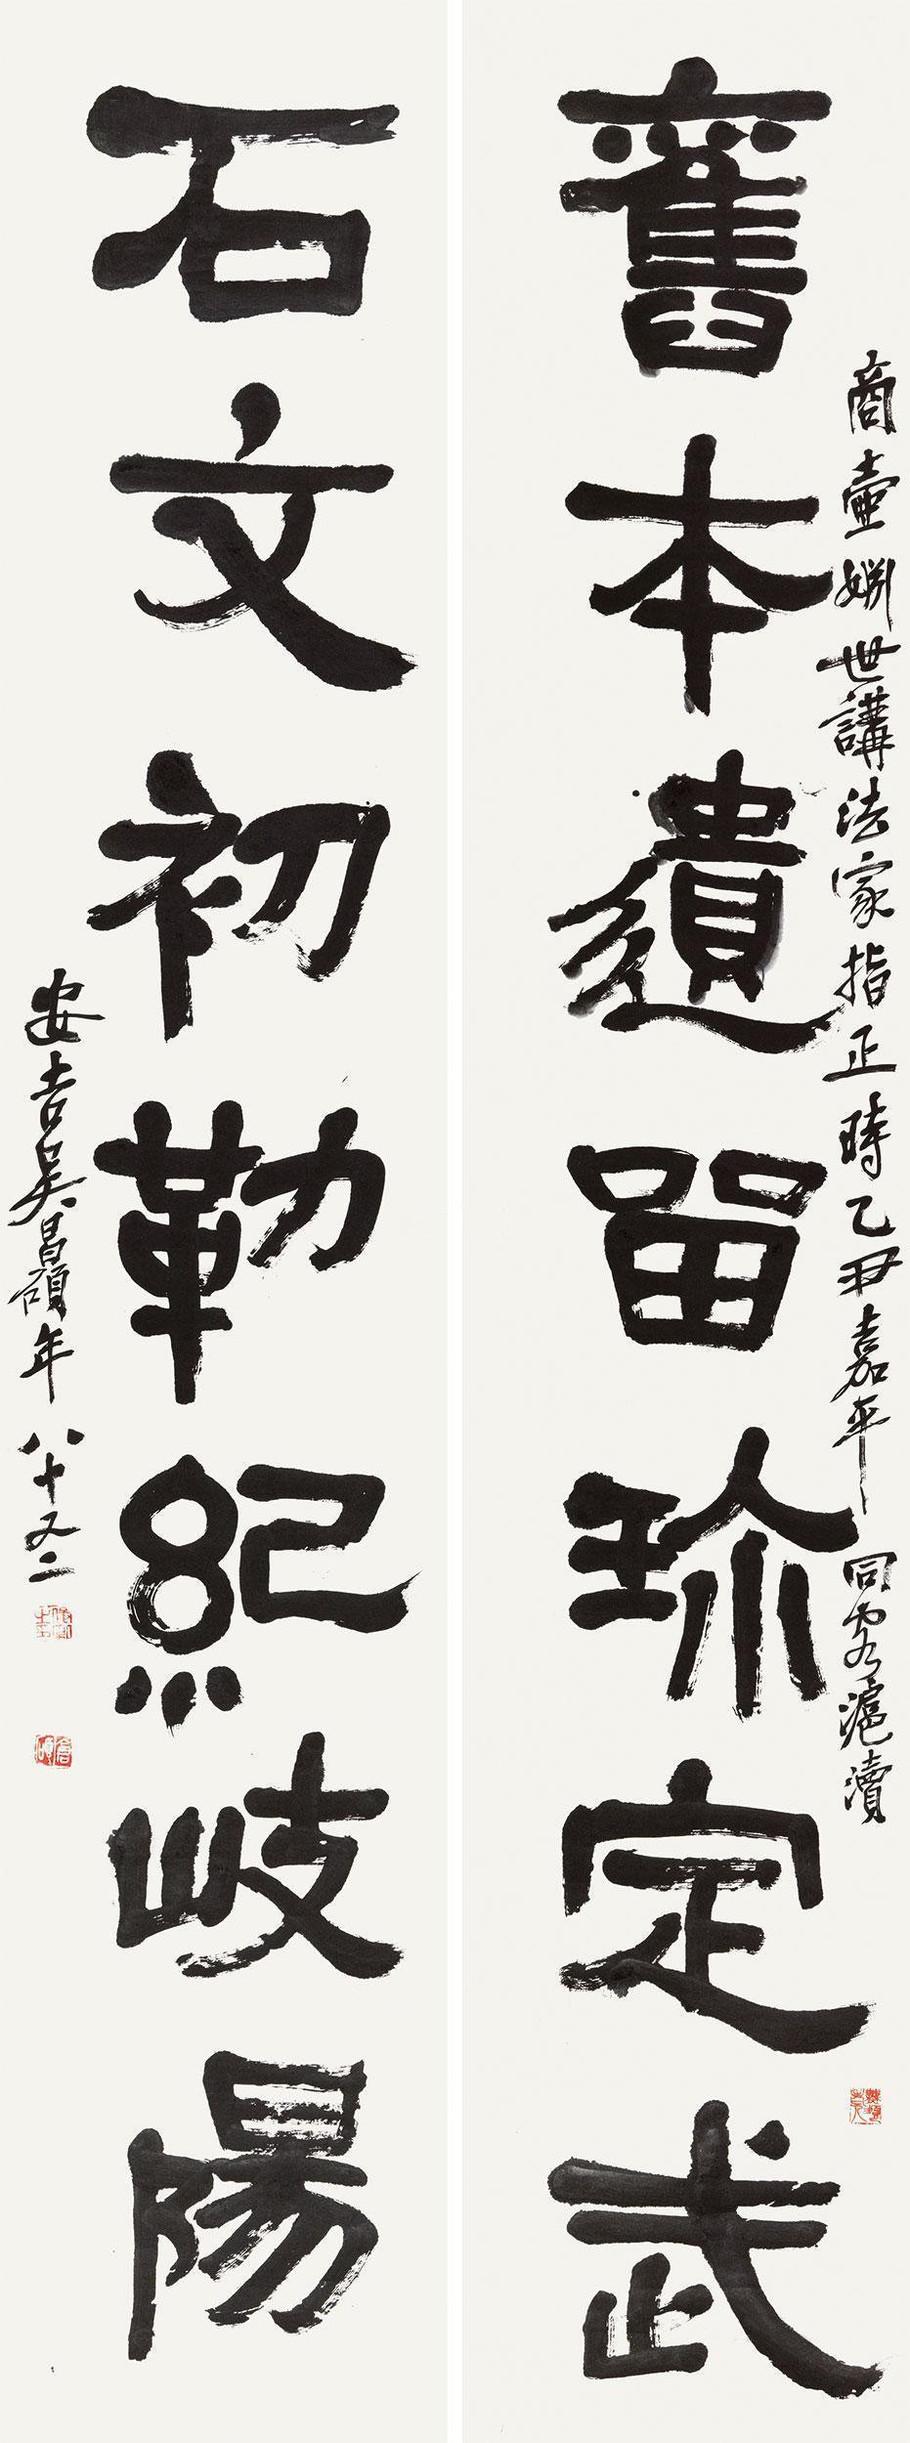 商壺姻世講法家指正時乙丑嘉平同客滬瀆
舊本遺畱珍定武
石文初勒紀岐陽
安吉吳昌碩年八十又二
倉碩